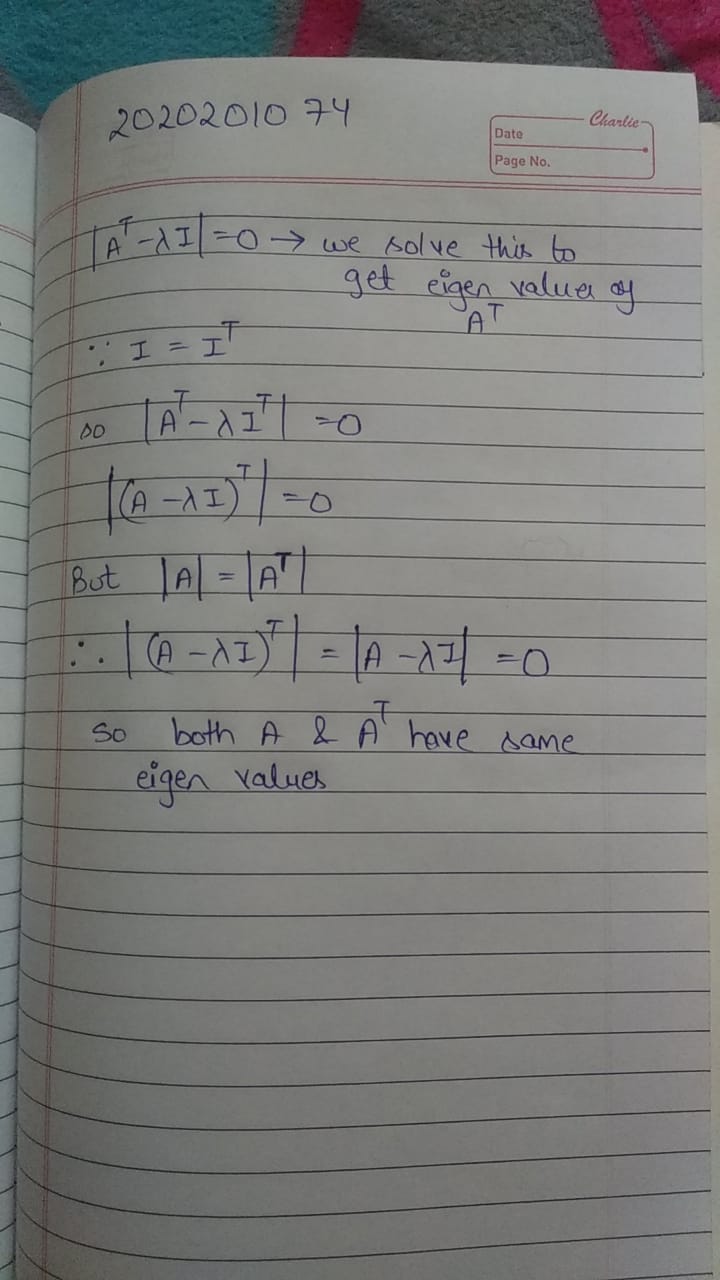 2020201074
Charlie
Date
Page No.
|Aᵀ-λI|=0 → we solve this to
get eigen values of
Aᵀ
∵ I = Iᵀ
so |Aᵀ-λIᵀ| =0
|(A-λI)ᵀ|=0
But |A| = |Aᵀ|
∴ |(A-λI)ᵀ| = |A-λI| =0
So both A & Aᵀ have same
eigen values